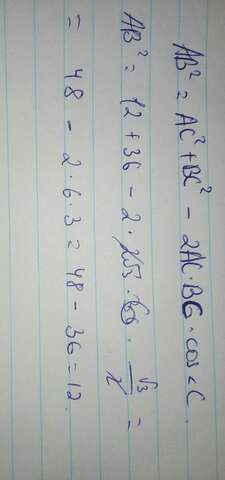 AB² = AC² + BC² - 2AC·BC·cos<C.
AB² = 12 + 36 - 2·2√3·6·√3/2 =
= 48 - 2·6·3 = 48 - 36 = 12.